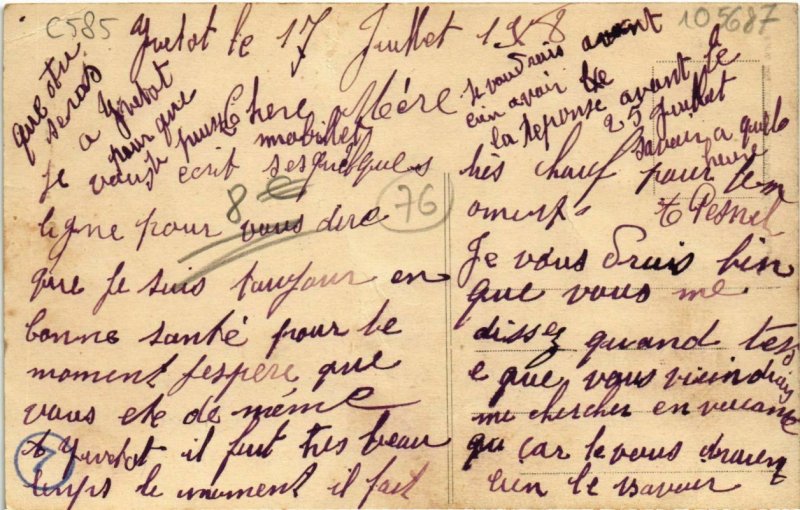 C585
105687
Yvetot le 17 Juillet 1918
Chere Mère
je vous écrit ses quelques
ligne pour vous dire
que je suis toujour en
bonne santé pour le
moment j'espère que
vous ete de même
a Yvetot il fait tres beau
temps le moment il fait
très chauf pour le m
oment. E Pesnel
Je vous drais bien
que vous me
dissez quand tess
e que vous vieindrais
me chercher en vacance
qu car le vous draien
bien le savoir
Je voudrais avant
bien avoir
la reponse avant le
25 Juillet
savoir a quele
heure
que otu
seras
a Yvetot
pour que
puise
mabiller
8
76
7